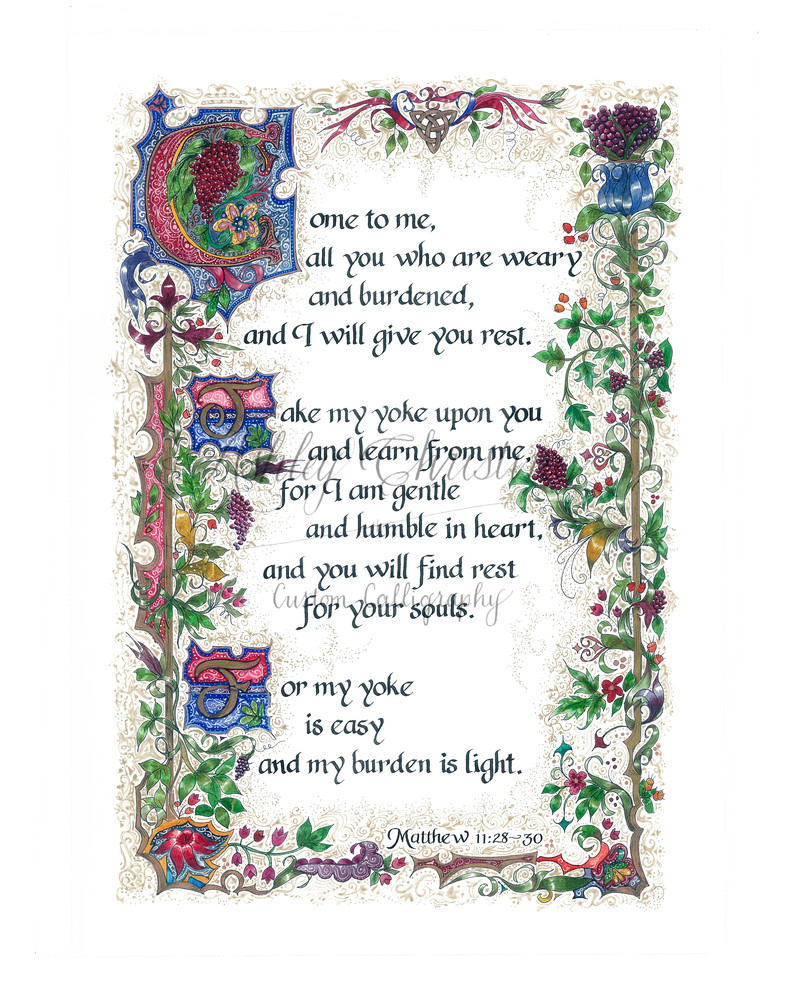 Come to me,
all you who are weary
and burdened,
and I will give you rest.
Take my yoke upon you
and learn from me,
for I am gentle
and humble in heart,
and you will find rest
for your souls.
For my yoke
is easy
and my burden is light.
Matthew 11:28-30
Custom Calligraphy